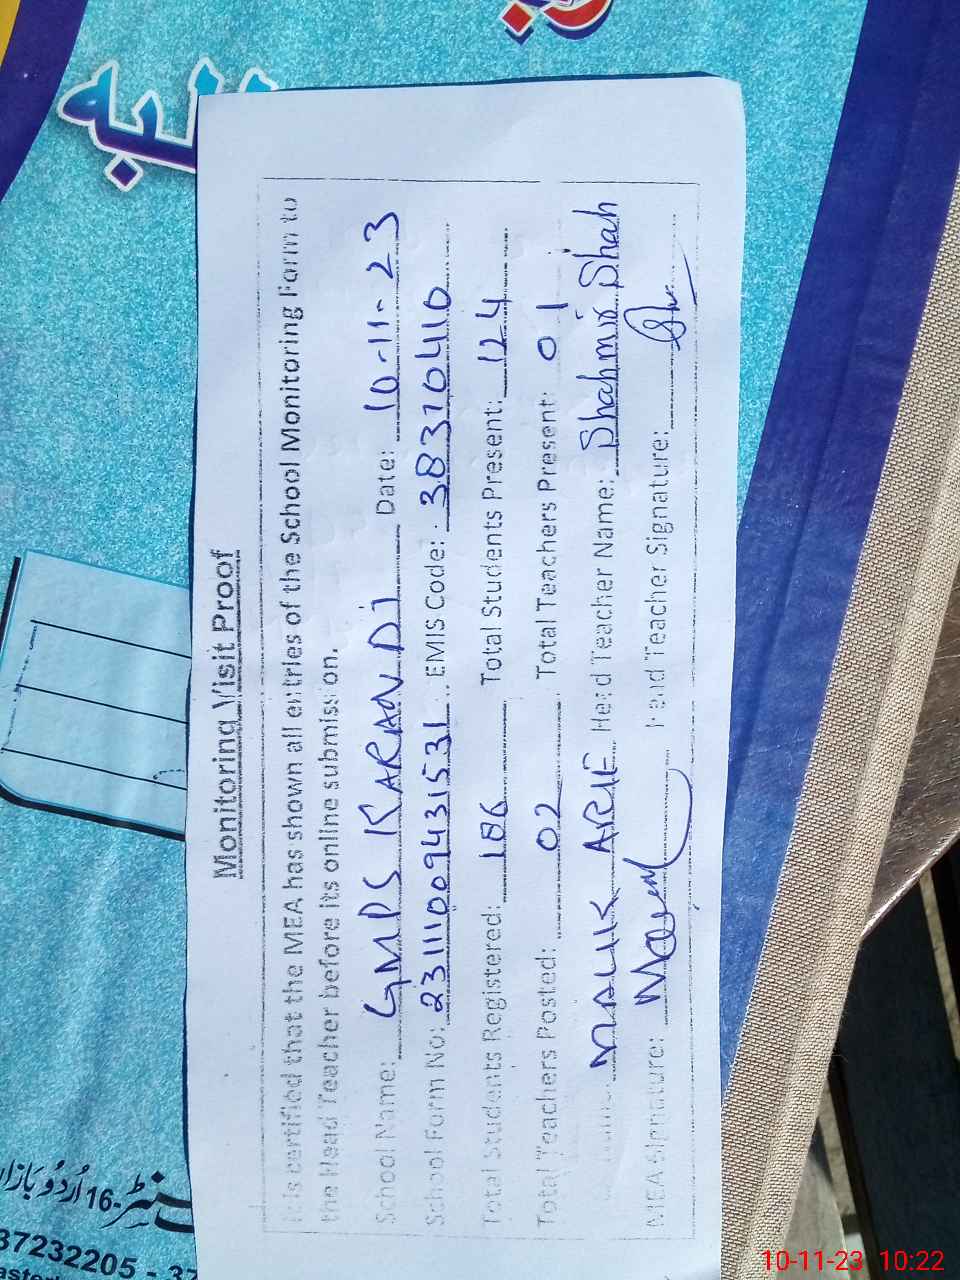 Monitoring Visit Proof
It is certified that the MEA has shown all entries of the School Monitoring Form to
the Head Teacher before its online submission.
School Name: GMPS KARANDI Date: 10-11-23
School Form No: 23111009431531 EMIS Code: 38310410
Total Students Registered: 186 Total Students Present: 124
Total Teachers Posted: 02 Total Teachers Present: 01
Name: MALIK ARIF Head Teacher Name: Shahmir Shah
MEA Signature: Head Teacher Signature:
16-اُردُو بَازَار
37232205 - 37
10-11-23 10:22